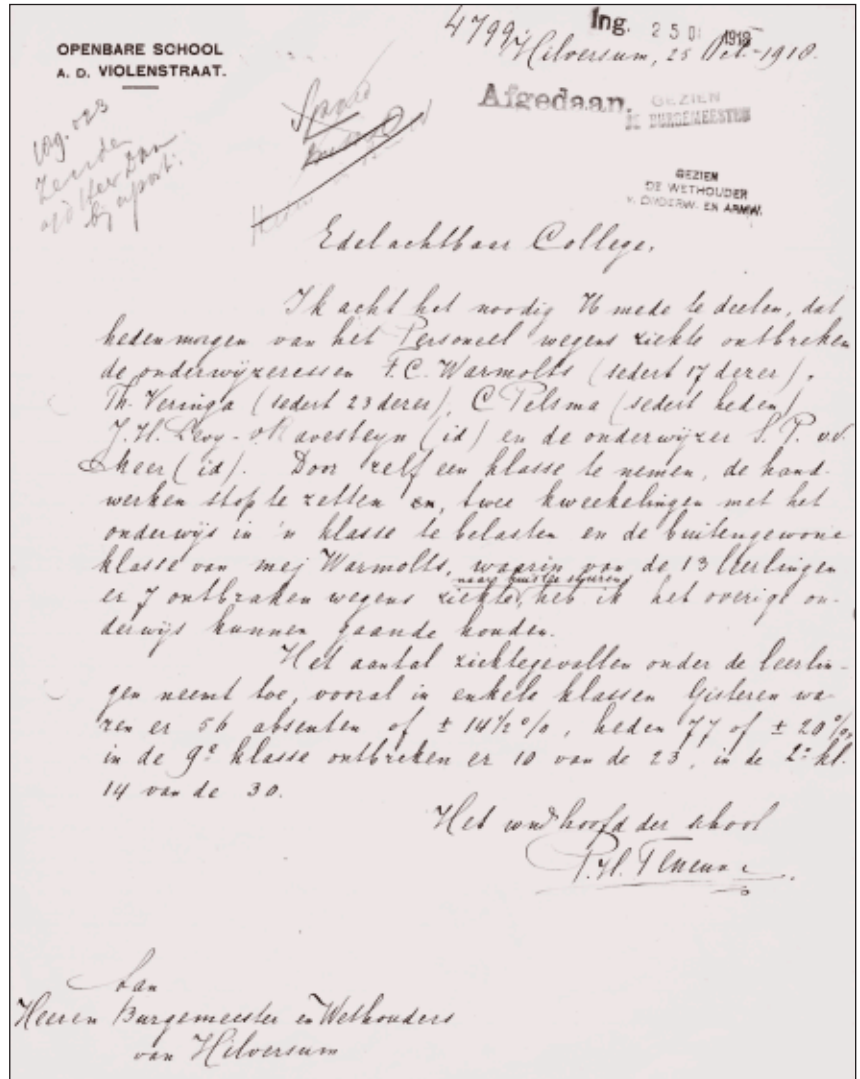 OPENBARE SCHOOL
A. D. VIOLENSTRAAT.
4799.
Ing. 25 O 1918
Hilversum, 25 Oct. 1918.
Afgedaan.
GEZIEN
DE BURGEMEESTER
GEZIEN
DE WETHOUDER
v. ONDERW. EN ARMW.
Spoed
Zenden
a/d Heer Dan
bij apart.
Edelachtbaar College,
Ik acht het noodig U mede te deelen, dat
hedenmorgen van het Personeel wegens ziekte ontbreken
de onderwijzeressen F.C. Warmolts (sedert 17 dezer),
Th. Veringa (sedert 23 dezer), C Pelsma (sedert heden)
J.H. Levy-v Ravesteyn (id) en de onderwijzer S. P. v.d.
heer (id). Door zelf een klasse te nemen, de hand-
werken stop te zetten en, twee kweekelingen met het
onderwijs in 'n klasse te belasten en de buitengewone
klasse van mej Warmolts, waarin van de 13 leerlingen
er 7 ontbraken wegens ziekte, naar huis te sturen, heb ik het overige on-
derwijs kunnen gaande houden.
Het aantal ziektegevallen onder de leerlin-
gen neemt toe, vooral in enkele klassen Gisteren wa-
ren er 56 absenten of ± 14½%, heden 77 of ± 20%,
in de 9e klasse ontbreken er 10 van de 23, in de 2e kl.
14 van de 30.
Het wnd hoofd der school
P.H.
Aan
Heeren Burgemeester en Wethouders
van Hilversum